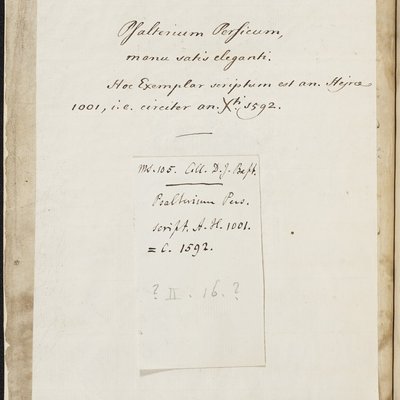 Psalterium Persicum,
manu satis eleganti.
Hoc Exemplar scriptum est an. Hejræ
1001, i.e. circiter an. Xti 1592.
MS. 105. Coll. D. J. Bapt.
Psalterium Pers.
script. A. H. 1001.
= C. 1592.
? II. 16. ?